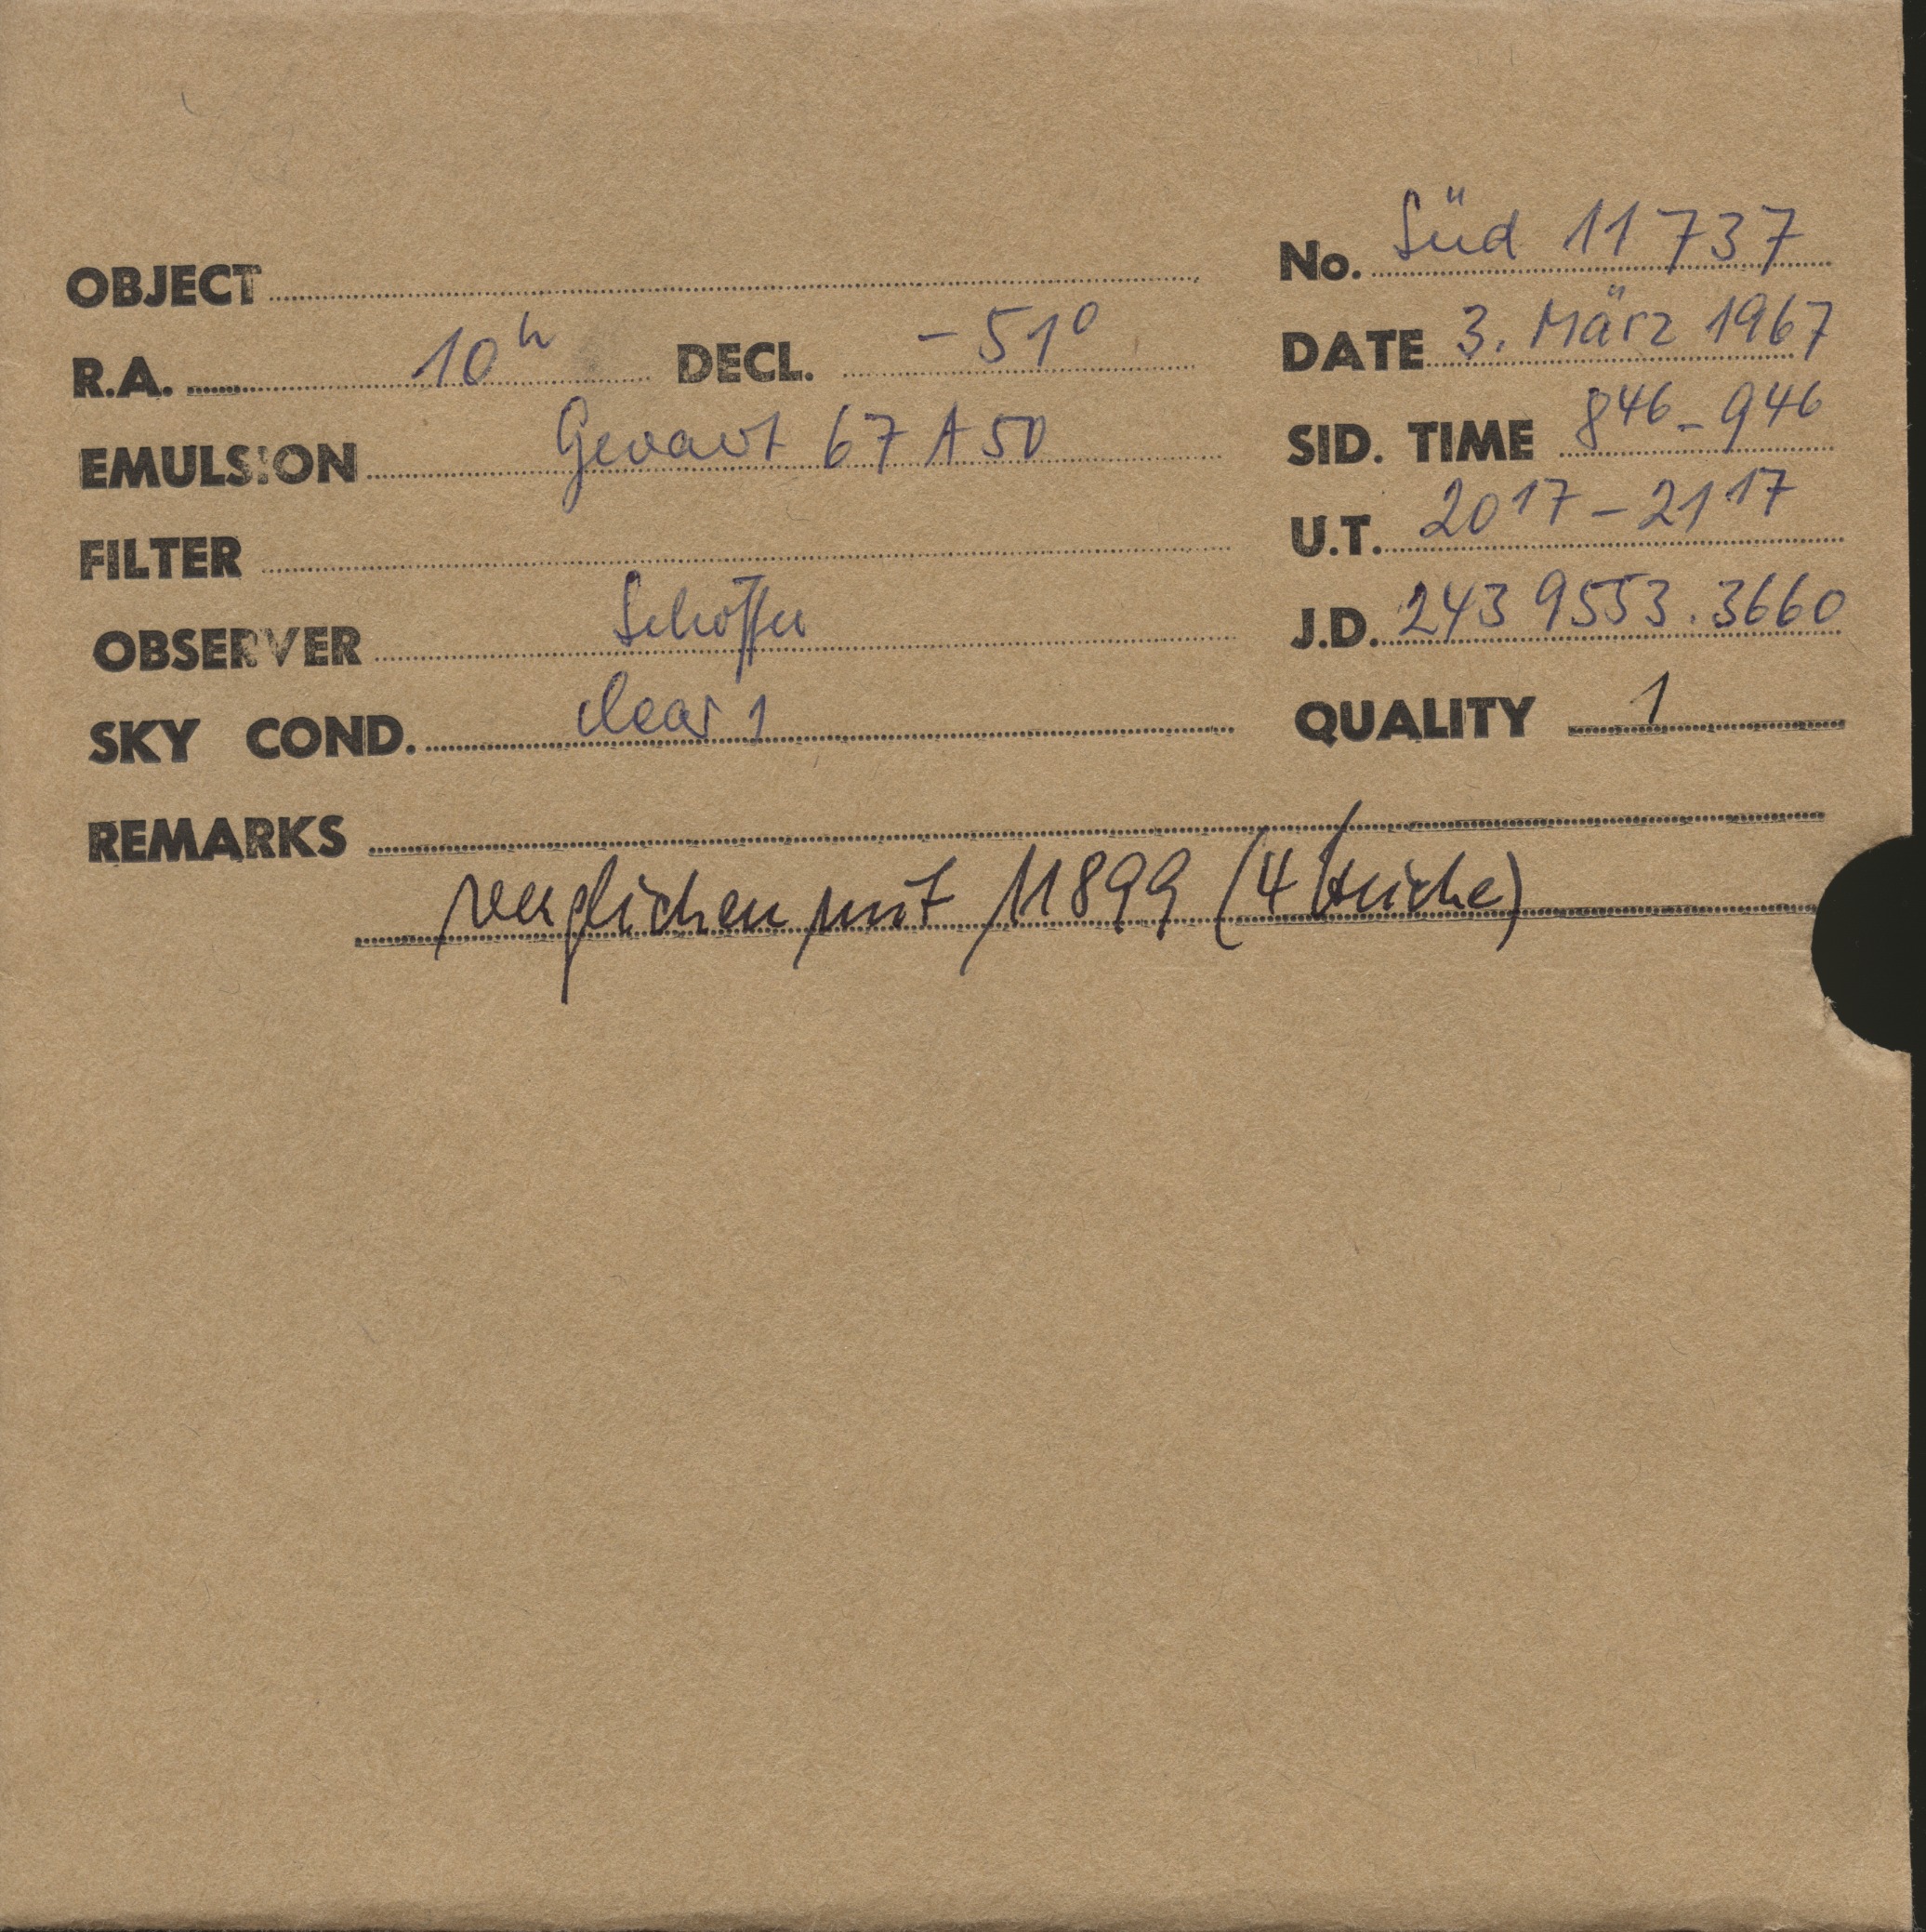 No. Süd 11737
OBJECT
R.A. 10h DECL. -51°
DATE 3. März 1967
EMULSION Gevaert 67 A 50
SID. TIME 8 46 - 9 46
FILTER
U.T. 20 17 - 21 17
OBSERVER Schöffel
J.D. 243 9553.3660
SKY COND. clear 1
QUALITY 1
REMARKS
verglichen mit 11899 (4 Striche)